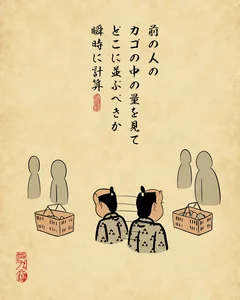 前の人の
カゴの中の量を見て
どこに並ぶべきか
瞬時に計算